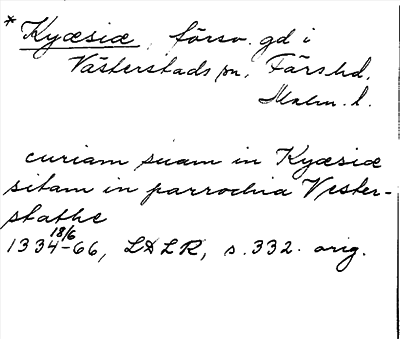 * Kyæsiæ, försv. gd i
Västerstads sn, Färs hd,
Malm. l.
curiam suam in Kyæsiæ
sitam in parrochia Vester-
stathe
1334 18/6 -66, LÄLR, s. 332. orig.